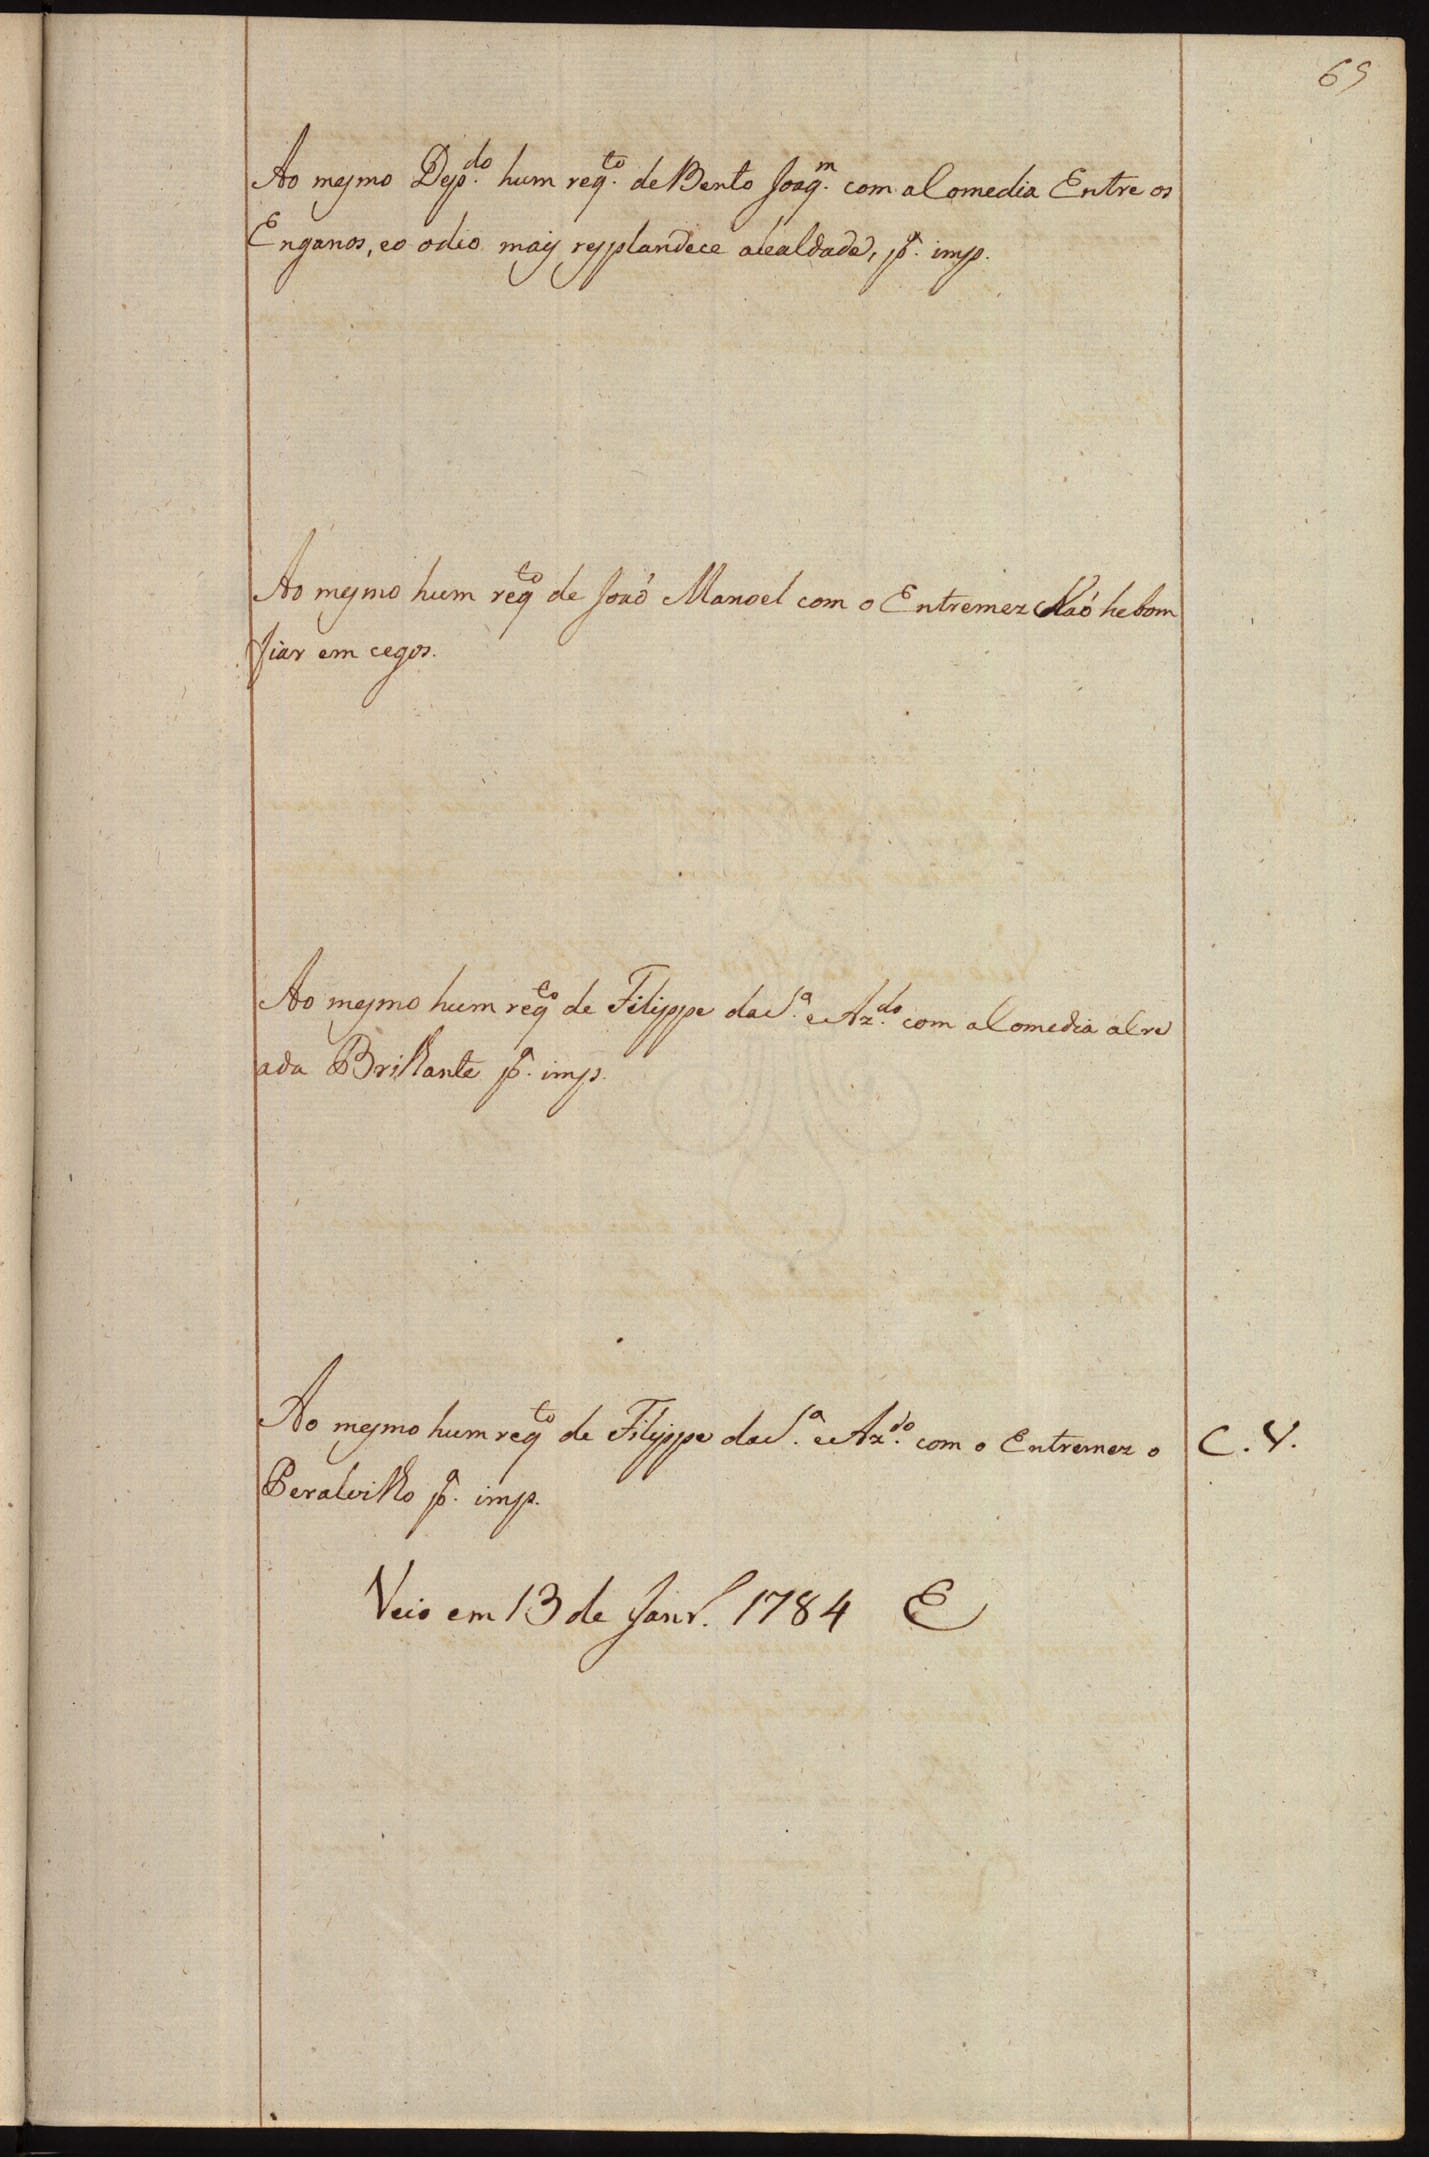 69
Ao mesmo Dep.do hum req.to de Bento Joaq.m com a Comedia Entre os
Enganos, e o odio mais resplandece a lealdade, p.a imp.
Ao mesmo hum req.to de Joaõ Manoel com o Entremez Naõ he bom
fiar em cegos.
Ao mesmo hum req.to de Filippe da S.a e Az.do com a Comedia a Cre
ada Brilhante p.a imp.
Ao mesmo hum req.to de Filippe da S.a e Az.do com o Entremez o
Peralvilho p.a imp.
C. V.
Veio em 13 de Janr.o 1784 E